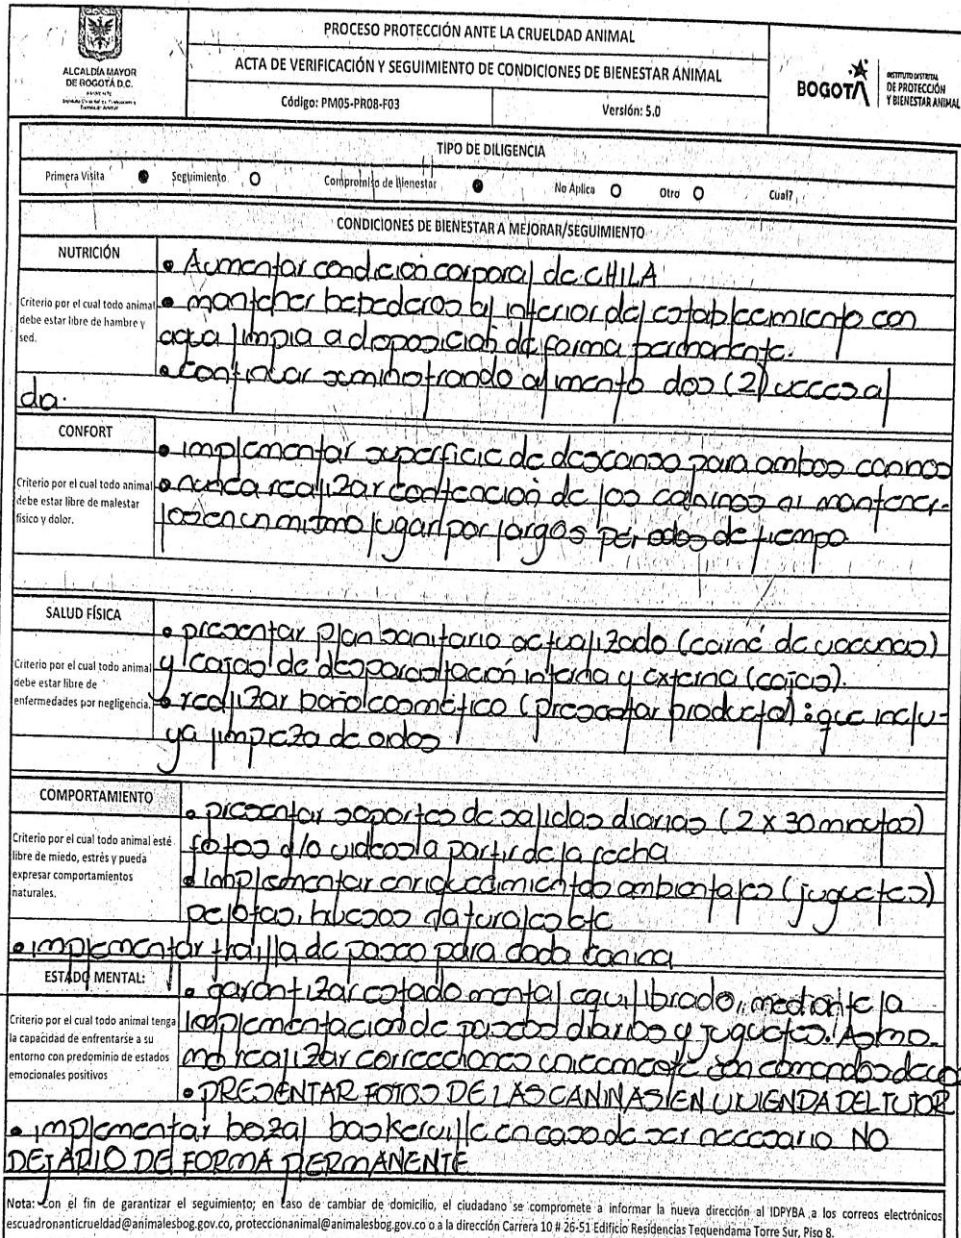 ALCALDÍA MAYOR
DE BOGOTÁ D.C.
PROCESO PROTECCIÓN ANTE LA CRUELDAD ANIMAL
ACTA DE VERIFICACIÓN Y SEGUIMIENTO DE CONDICIONES DE BIENESTAR ANIMAL
Código: PM05-PR08-F03
Versión: 5.0
BOGOTÁ
INSTITUTO DISTRITAL
DE PROTECCIÓN
Y BIENESTAR ANIMAL
TIPO DE DILIGENCIA
Primera Visita Seguimiento Compromiso de Bienestar No Aplica Otro Cual?
CONDICIONES DE BIENESTAR A MEJORAR/SEGUIMIENTO
NUTRICIÓN
Criterio por el cual todo animal
debe estar libre de hambre y
sed.
• Aumentar condición corporal de CHILA
• mantener bebederos al interior del establecimiento con
agua limpia a disposición de forma permanente.
• continuar suministrando alimento dos (2) veces al
día.
CONFORT
Criterio por el cual todo animal
debe estar libre de malestar
físico y dolor.
• implementar superficie de descanso para ambos caninos
• nunca realizar contención de los caninos ni mantener-
los en un mismo lugar por largos periodos de tiempo
SALUD FÍSICA
Criterio por el cual todo animal
debe estar libre de
enfermedades por negligencia.
• presentar plan sanitario actualizado (carné de vacunas)
y cajas de desparasitación interna y externa (cajas).
• realizar baño cosmético (presentar producto) que inclu-
ya limpieza de oidos
COMPORTAMIENTO
Criterio por el cual todo animal esté
libre de miedo, estrés y pueda
expresar comportamientos
naturales.
• presentar soportes de salidas diarias (2 x 30 minutos)
fotos y/o videos a partir de la fecha
• implementar enriquecimientos ambientales (juguetes)
pelotas, huesos naturales etc
• implementar trailla de paseo para cada canina
ESTADO MENTAL:
Criterio por el cual todo animal tenga
la capacidad de enfrentarse a su
entorno con predominio de estados
emocionales positivos
• garantizar estado mental equilibrado, mediante la
implementación de paseos diarios y juguetes. Asimis-
mo realizar correcciones unicamente con comandos de voz
• PRESENTAR FOTOS DE LAS CANINAS EN VIVIENDA DEL TUTOR
• implementar bozal baskerville en caso de ser necesario NO
DEJARLO DE FORMA PERMANENTE
Nota: Con el fin de garantizar el seguimiento; en caso de cambiar de domicilio, el ciudadano se compromete a informar la nueva dirección al IDPYBA a los correos electrónicos
escuadronanticrueldad@animalesbog.gov.co, proteccionanimal@animalesbog.gov.co o a la dirección Carrera 10 # 26-51 Edificio Residencias Tequendama Torre Sur, Piso 8.